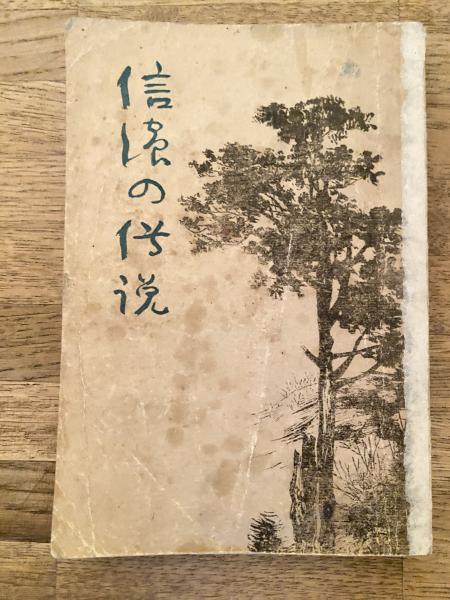 信濃の傳説